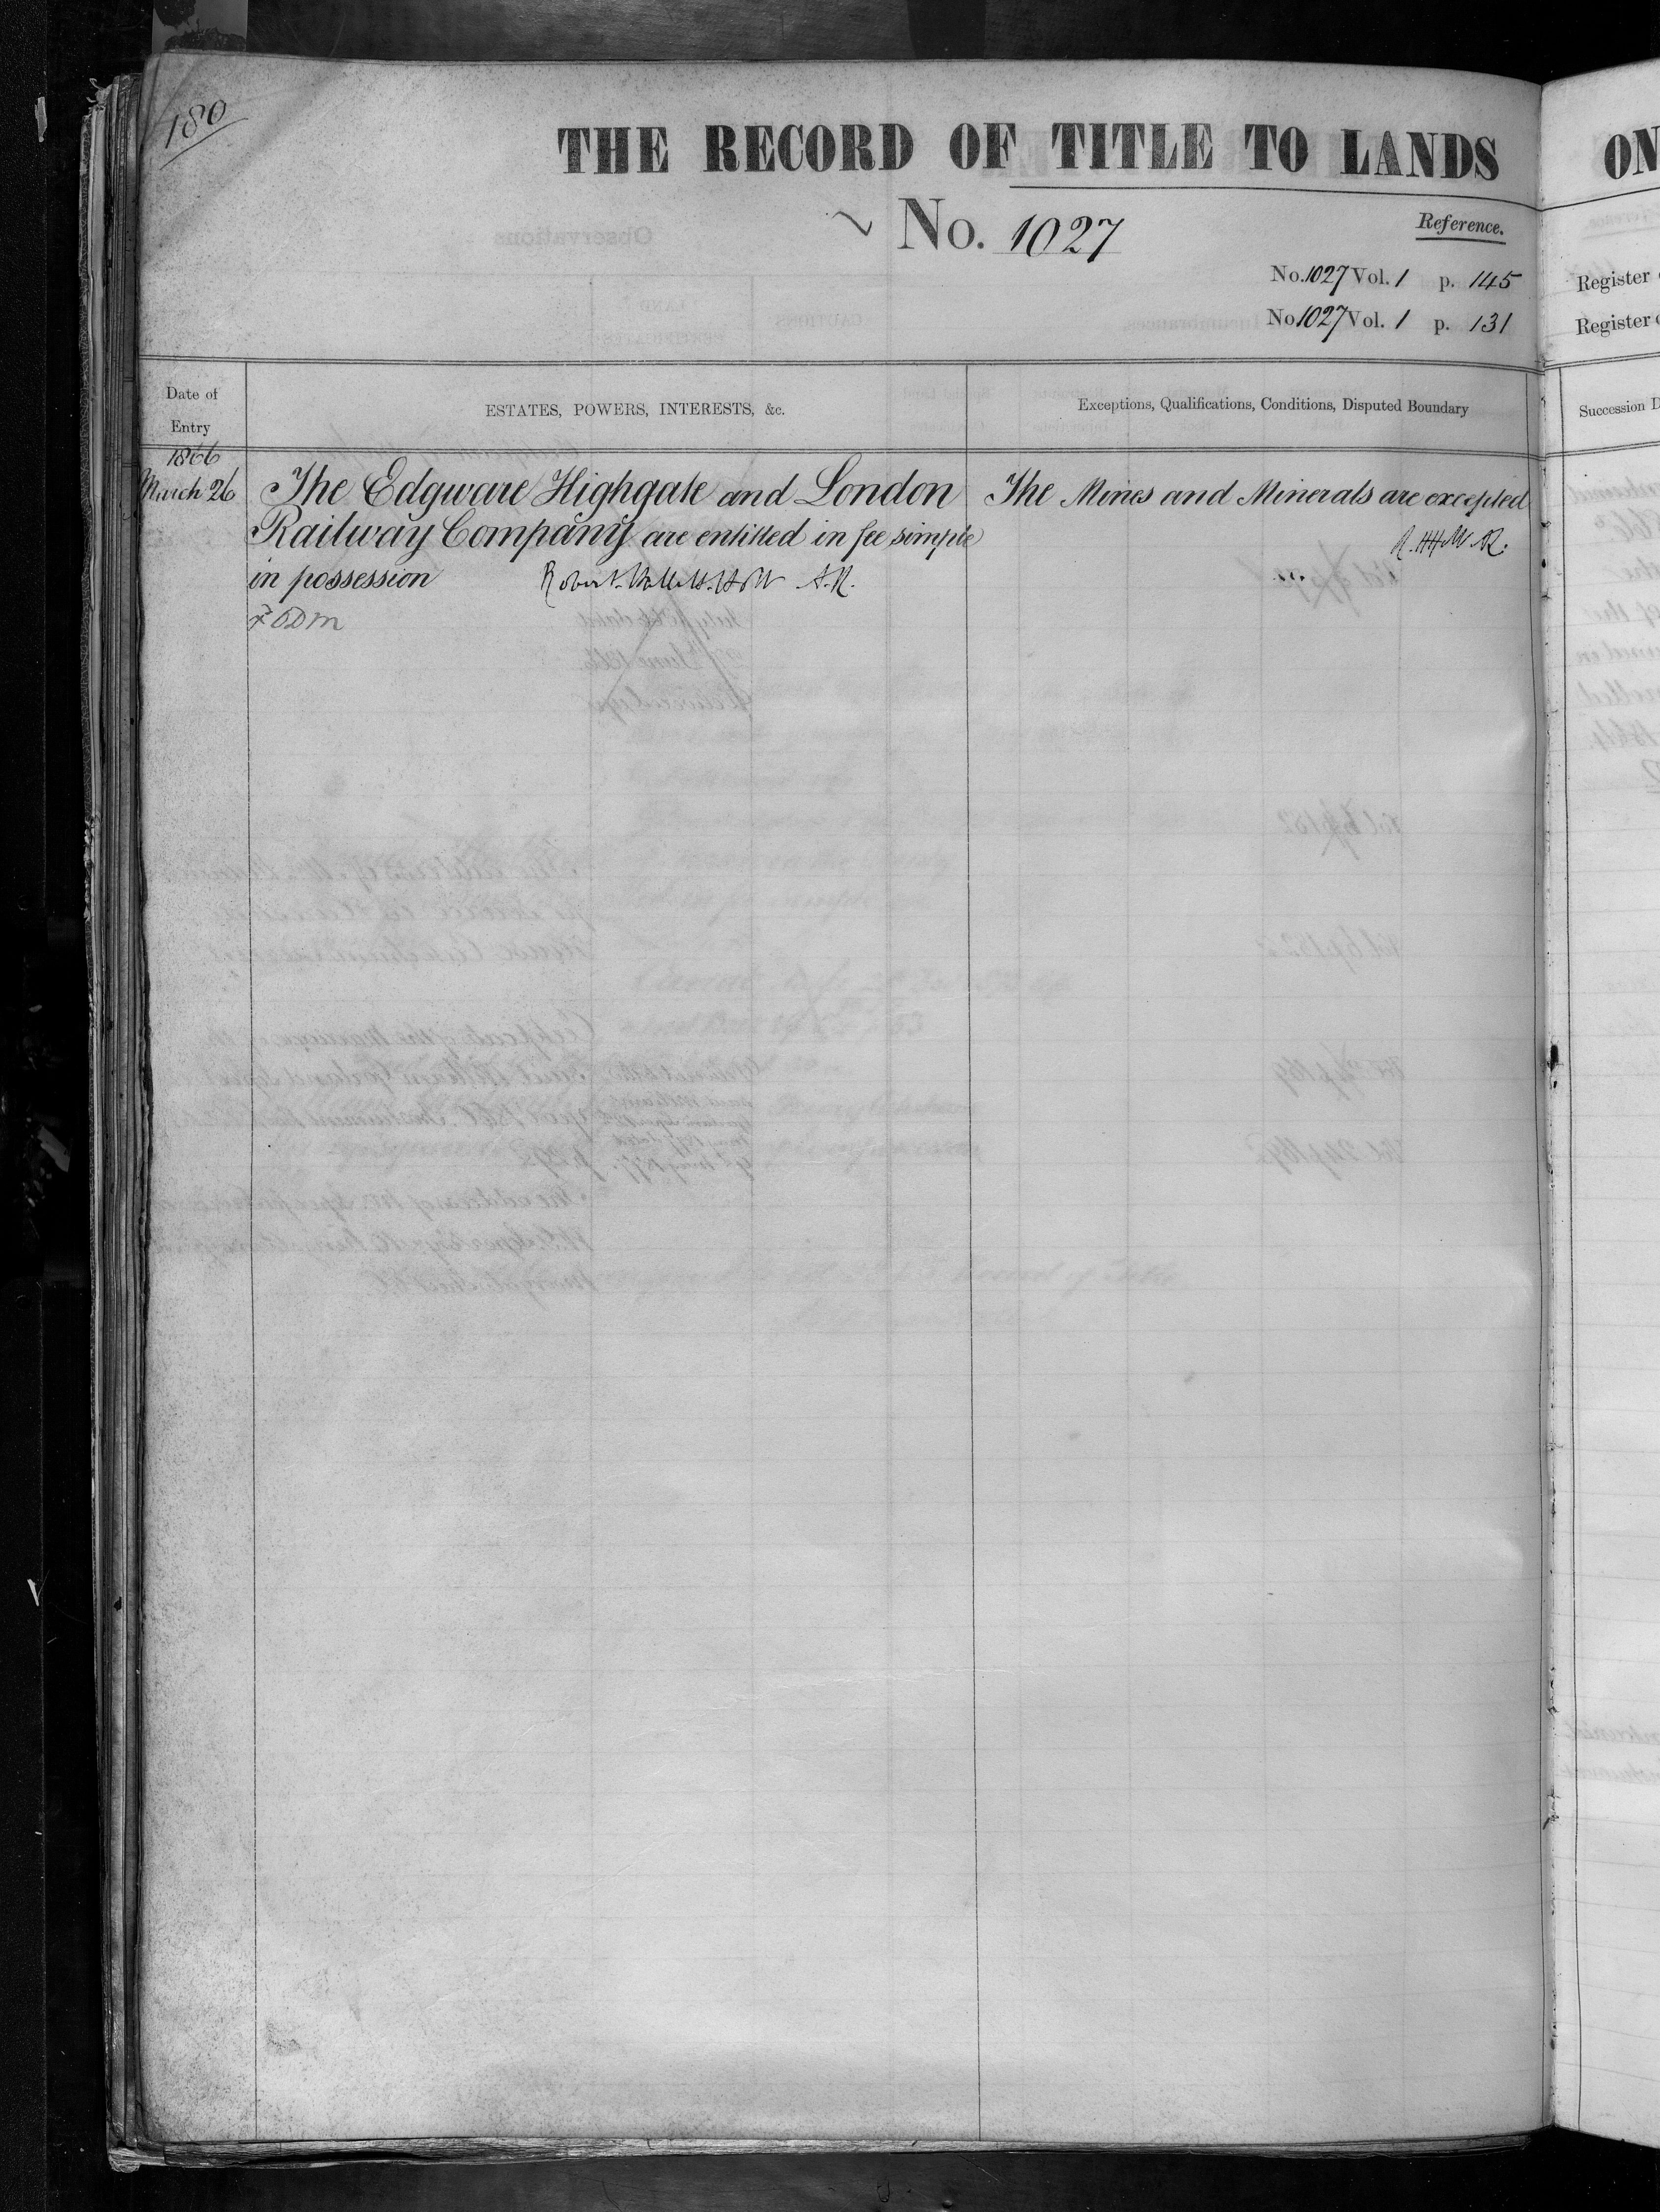 180
THE RECORD OF TITLE TO LANDS
No. 1027
Reference.
No. 1027 Vol. 1 p. 145
No 1027 Vol. 1 p. 131
Date of Entry
ESTATES, POWERS, INTERESTS, &c.
Exceptions, Qualifications, Conditions, Disputed Boundary
1866
March 26
The Edgware Highgate and London
Railway Company are entitled in fee simple
in possession Robert Hallett Holt A.R.
The Mines and Minerals are excepted
R.HH. A.R.
ON
Register
Register
Succession D